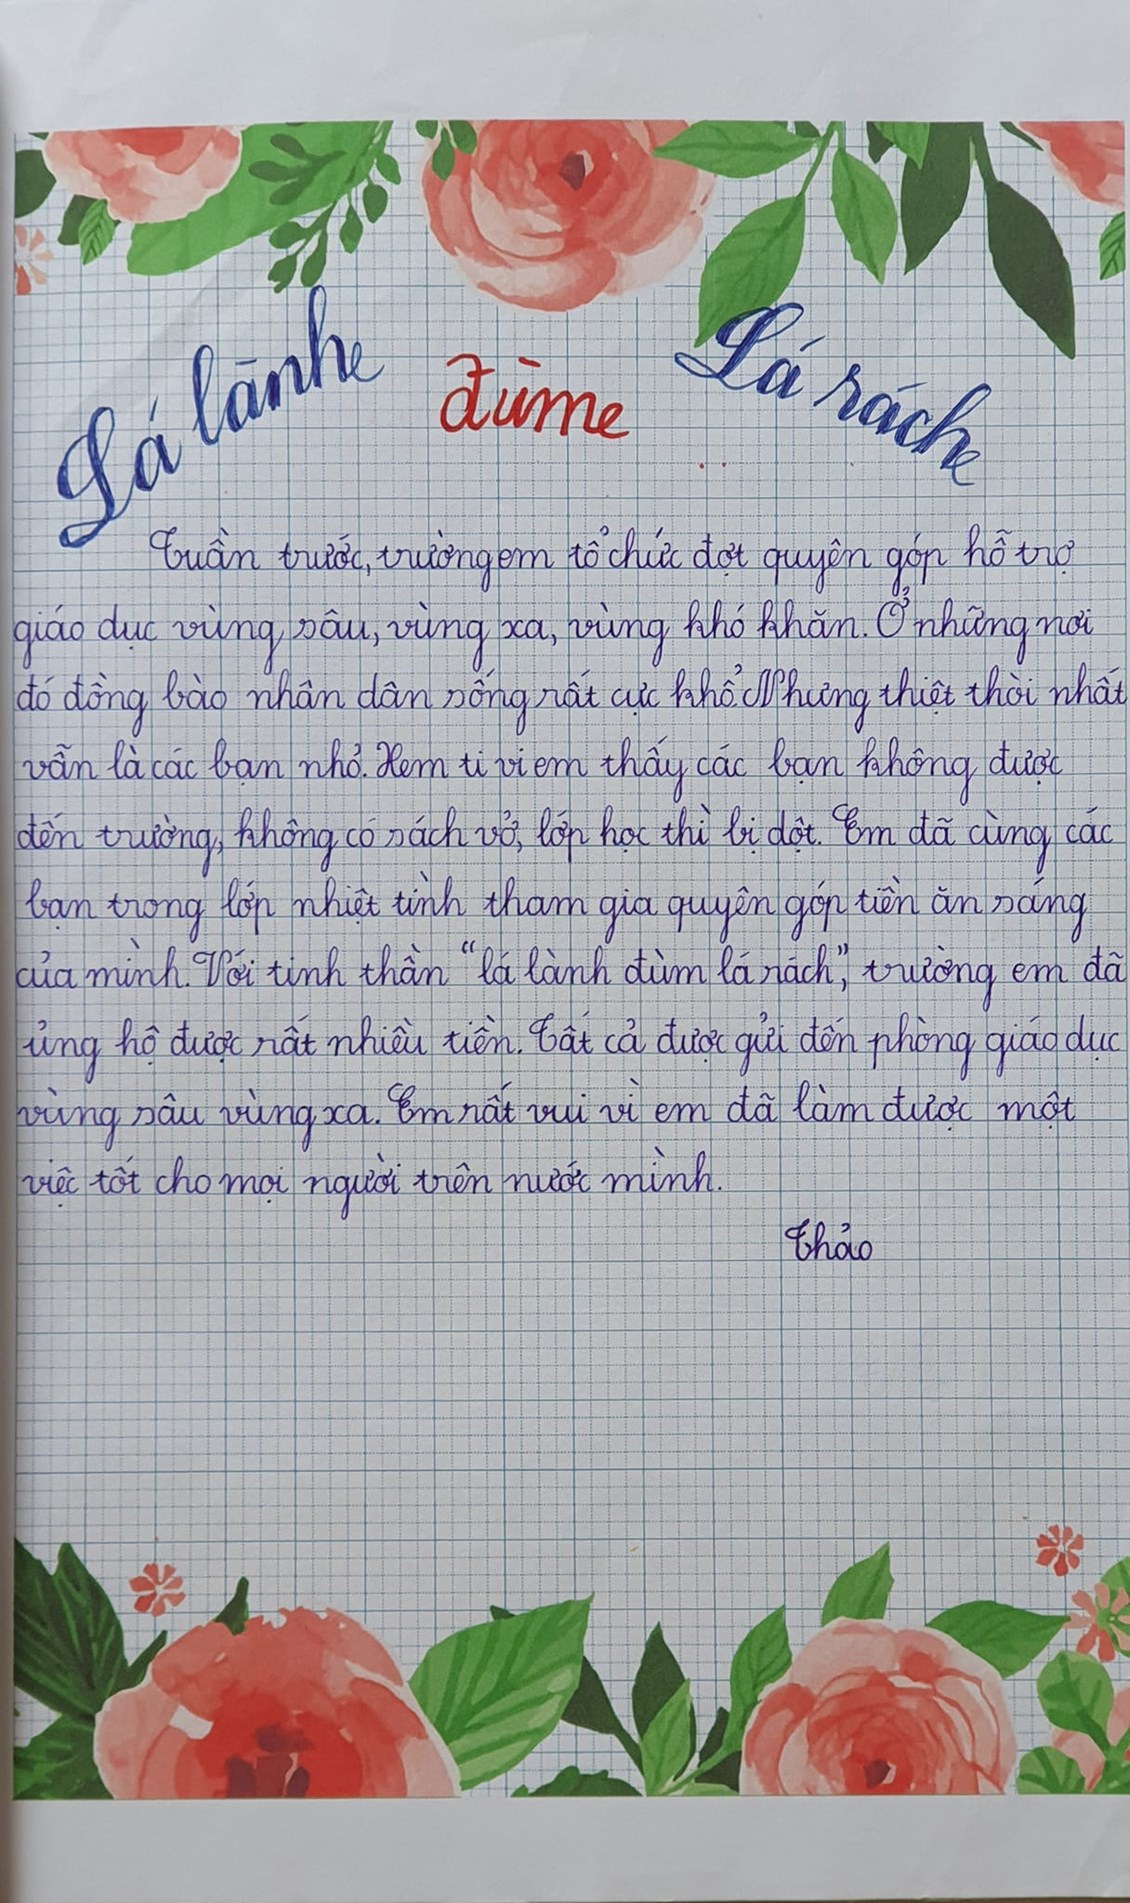 Lá lành đùm Lá rách
Tuần trước, trường em tổ chức đợt quyên góp hỗ trợ
giáo dục vùng sâu, vùng xa, vùng khó khăn. Ở những nơi
đó đồng bào nhân dân sống rất cực khổ. Nhưng thiệt thòi nhất
vẫn là các bạn nhỏ. Xem ti vi em thấy các bạn không được
đến trường, không có sách vở, lớp học thì bị dột. Em đã cùng các
bạn trong lớp nhiệt tình tham gia quyên góp tiền ăn sáng
của mình. Với tinh thần "lá lành đùm lá rách", trường em đã
ủng hộ được rất nhiều tiền. Tất cả được gửi đến phòng giáo dục
vùng sâu vùng xa. Em rất vui vì em đã làm được một
việc tốt cho mọi người trên nước mình.
Thảo